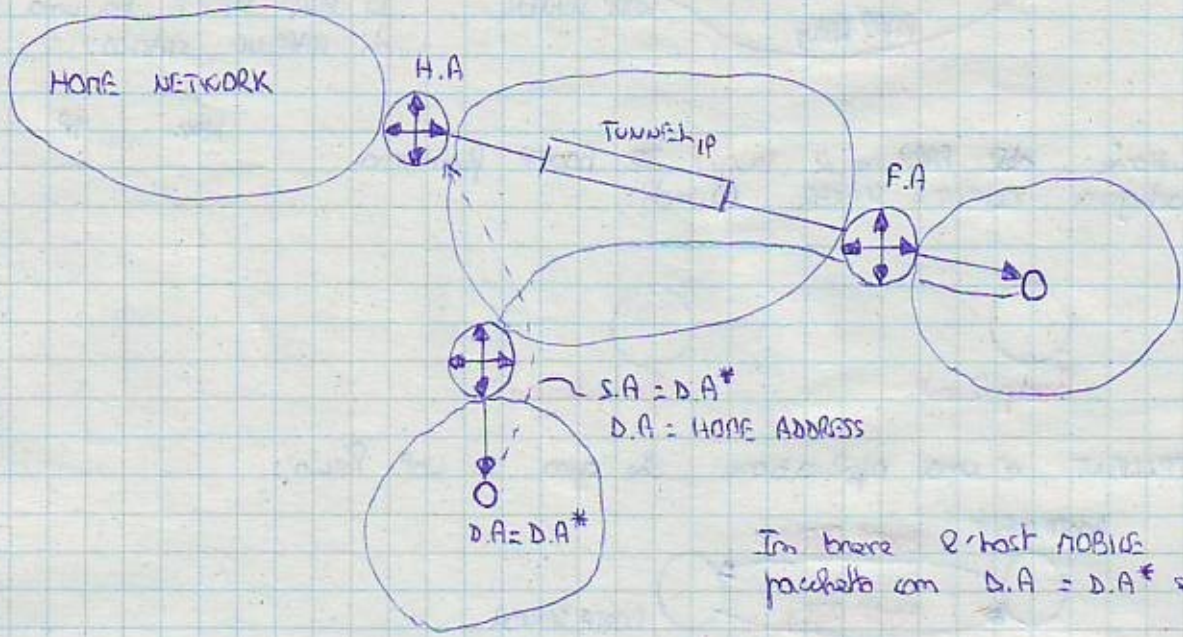 HOME NETWORK
H.A
TUNNEL IP
F.A
S.A = D.A*
D.A = HOME ADDRESS
D.A = D.A*
In breve l'host MOBILE
pacchetto com D.A = D.A* s